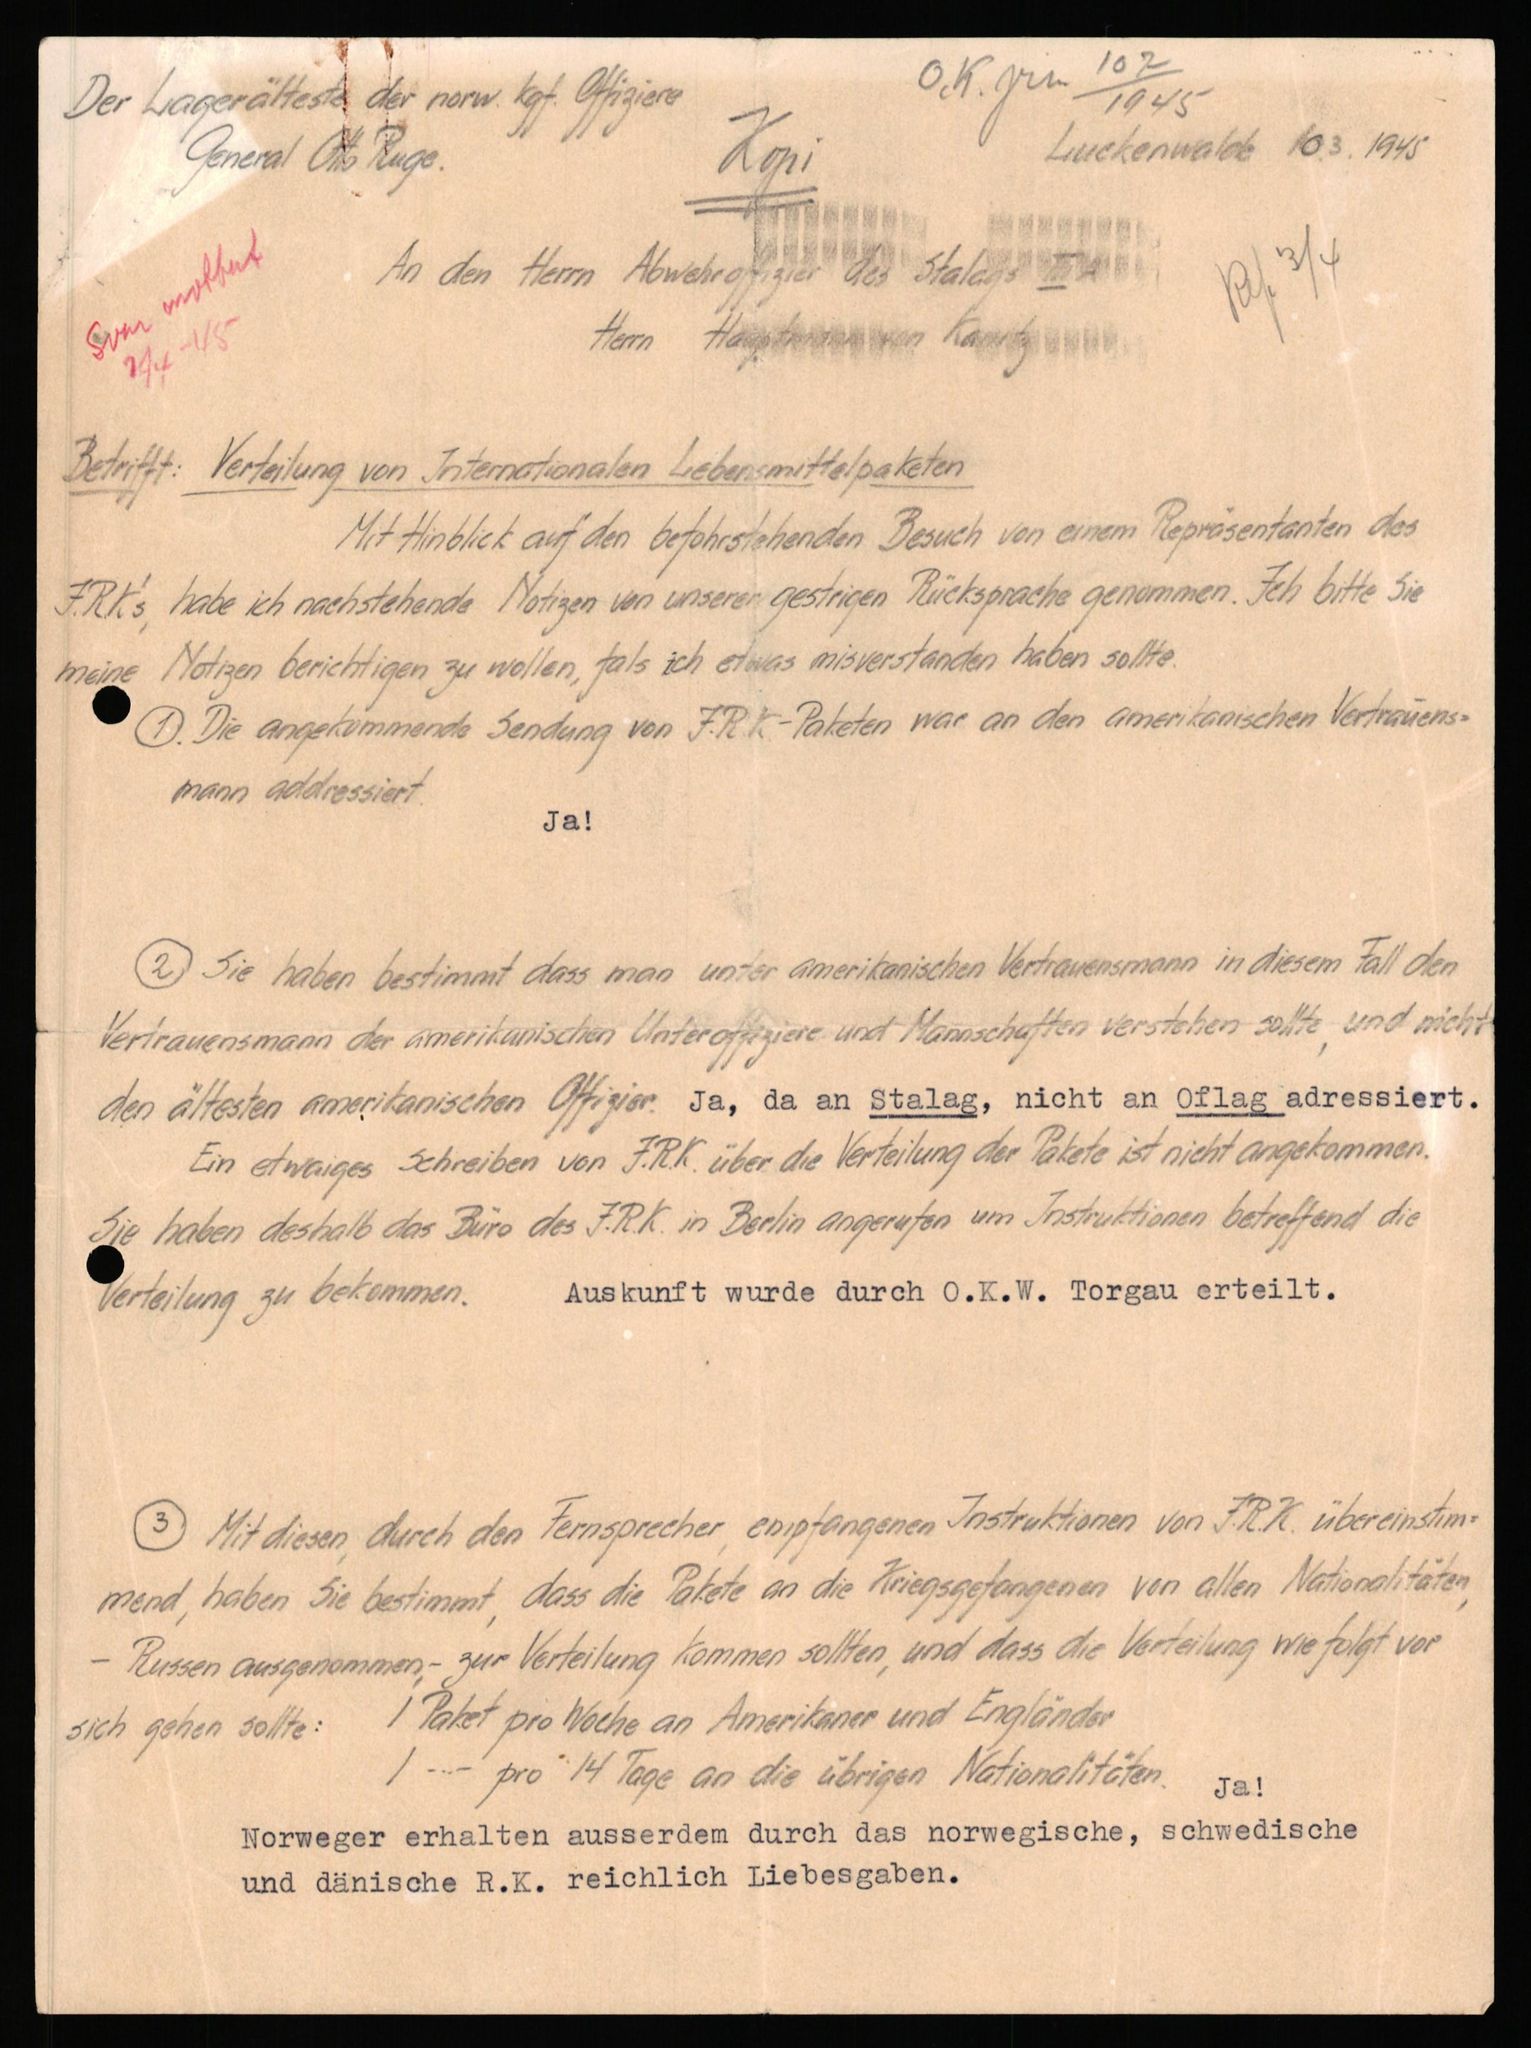 Der Lagerälteste der norw. kgf. Offiziere
General Otto Ruge.
O.K. 102/1945
Kopi
Luckenwalde 10.3.1945
An den Herrn Abwehroffizier des Stalags III A
Herrn Hauptmann von Kanitz
Svar mottatt
2/4-45
3/4
Betrifft: Verteilung von Internationalen Lebensmittelpaketen
Mit Hinblick auf den befohrstehenden Besuch von einem Repräsentanten des
I.R.K's, habe ich nachstehende Notizen von unserer gestrigen Rücksprache genommen. Ich bitte Sie
meine Notizen berichtigen zu wollen, fals ich etwas misverstanden haben sollte.
1). Die angekommende Sendung von I.R.K-Paketen war an den amerikanischen Vertrauens=
mann addressiert.
Ja!
2) Sie haben bestimmt dass man unter amerikanischen Vertrauensmann in diesem Fall den
Vertrauensmann der amerikanischen Unteroffiziere und Mannschaften verstehen sollte, und nicht
den ältesten amerikanischen Offizier. Ja, da an Stalag, nicht an Oflag adressiert.
Ein etwaiges Schreiben von I.R.K. über die Verteilung der Pakete ist nicht angekommen.
Sie haben deshalb das Büro des I.R.K. in Berlin angerufen um Instruktionen betreffend die
Verteilung zu bekommen. Auskunft wurde durch O.K.W. Torgau erteilt.
3) Mit diesen, durch den Fernsprecher, empfangenen Instruktionen von I.R.K. übereinstim=
mend, haben Sie bestimmt, dass die Pakete an die Kriegsgefangenen von allen Nationalitäten,
- Russen ausgenommen,- zur Verteilung kommen sollten, und dass die Verteilung wie folgt vor
sich gehen sollte: 1 Paket pro Woche an Amerikaner und Engländer
1 -"- pro 14 Tage an die übrigen Nationalitäten. Ja!
Norweger erhalten ausserdem durch das norwegische, schwedische
und dänische R.K. reichlich Liebesgaben.